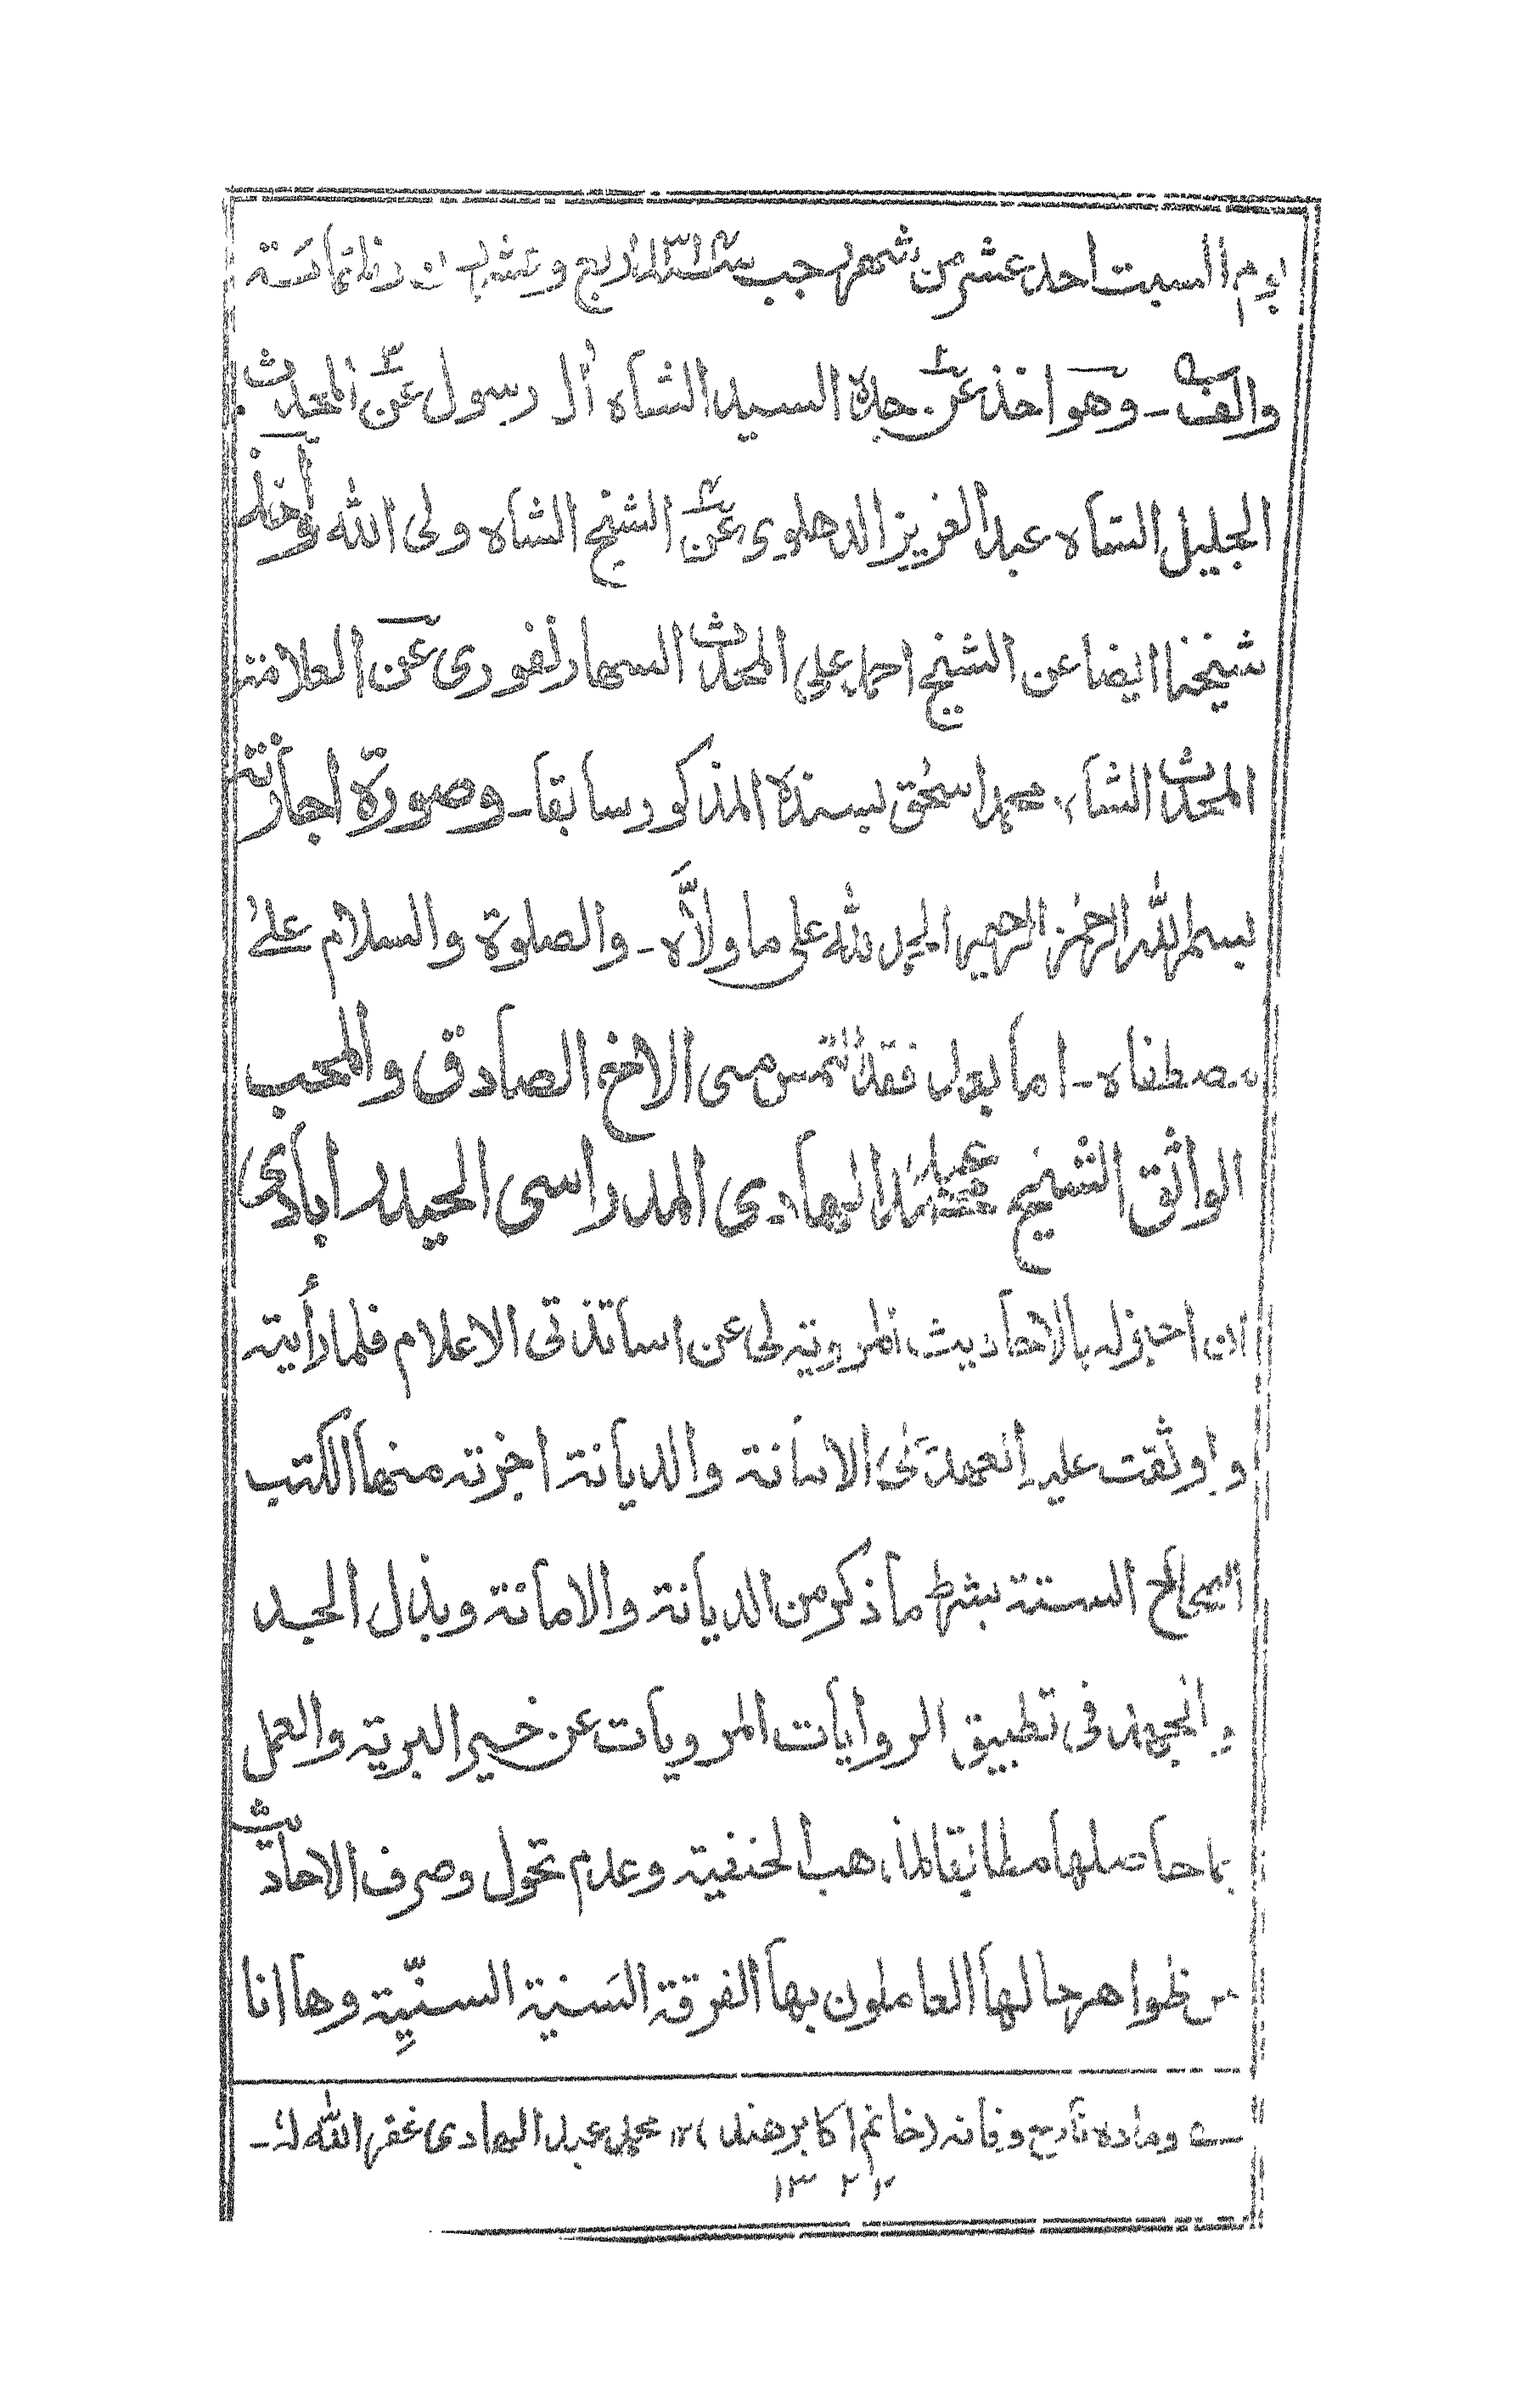 يوم السبت احد عشر من شهر رجب سنة ١٣٢٤ اربع وعشرين وثلثمائة
والف ـ وهو اخذ عن جده السيد الشاه آل رسول عن المحدث
الجليل الشاه عبد العزيز الدهلوى عن الشيخ الشاه ولى الله واخذ
شيخنا ايضا عن الشيخ احمد على المحدث السهارنفورى عن العلامة
المحدث الشاه محمد اسحٰق بسنده المذكور سابقا ـ وصورة اجازته
بسم الله الرحمٰن الرحيم الحمد لله على ما ولّاه ـ والصلوة والسلام علىٰ
مصطفاه ـ اما بعد فقد التمس منى الاخ الصادق والمحب
الواثق الشيخ محمد عبد الهادى المدراسى الحيدرابادى
ان اجيز له بالاحاديث المروية لى عن اساتذتى الاعلام فلما رأيته
و اوثقت عليه العهدة فى الامانة والديانة اجزته منها الكتب
الصحاح الستة بشرط ما ذكر من الديانة والامانة وبذل الجد
والجهد فى تطبيق الروايات المرويات عن خير البرية والعمل
بما حاصلها مطابقا لمذهب الحنفية وعدم تحول وصرف الاحاديث
من ظواهر حالها العاملون بها الفرقة السنية السنّيّة وها انا
ومادة تاريخ وفاته (خاتم اكابر هند) ١٢ محمد عبد الهادى غفر الله لهٗ ـ